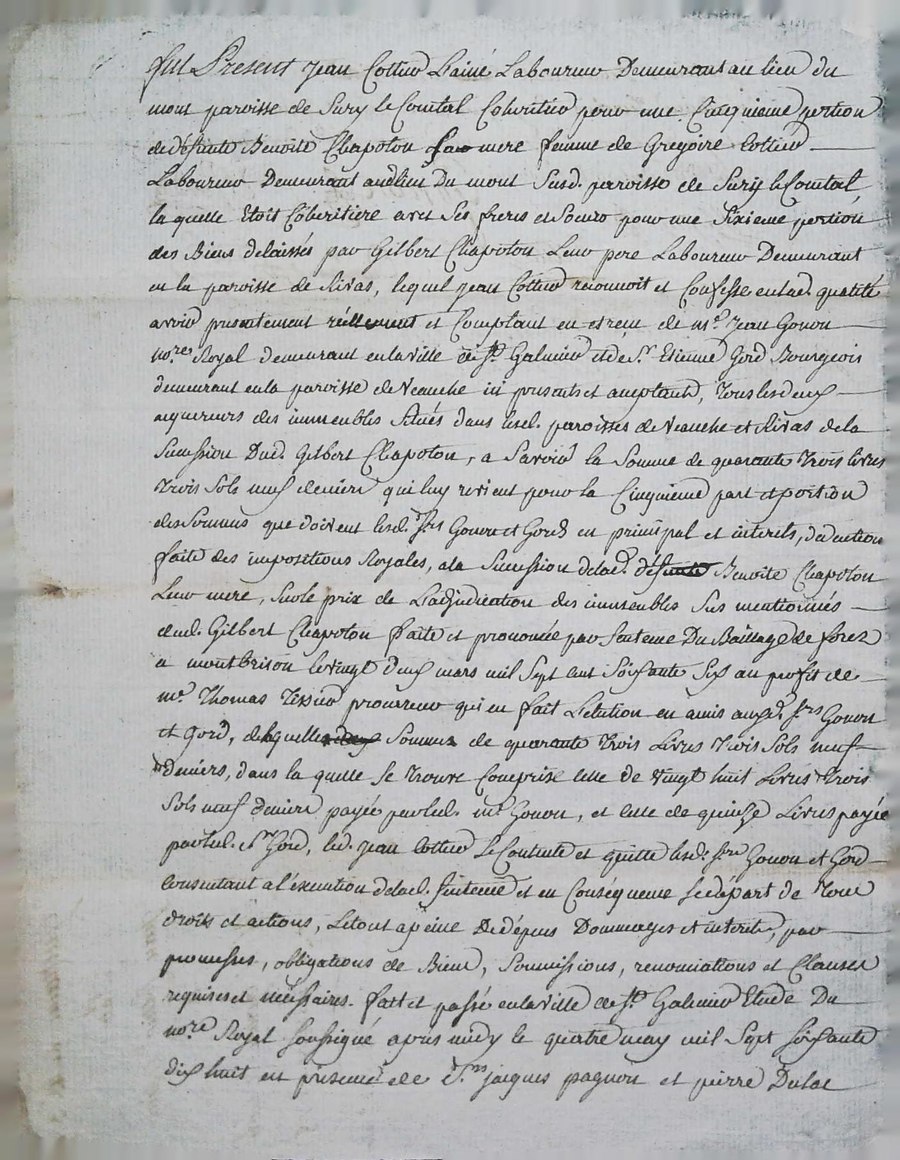 fut Present Jean Cottier L'ainé Laboureur Demeurant au lieu du
mont paroisse de Sury le Comtal Coheritier pour une Cinquieme portion
de défunte Benoite Chapoton sa mere femme de Gregoire Cottier
Laboureur Demeurant audlieu Du mont Susd. paroisse de Sury le Comtal
la quelle Etoit Cohéritiere avec Ses freres et Soeurs pour une Sixieme portion
des Biens delaissés par Gilbert Chapoton Leur pere Laboureur Demeurant
en la paroisse de Rivas, lequel Jean Cottier reconnoit et Confesse enlad. qualité
avoir presentement réellement et Comptant eu et reçu de me. Jean Gonon
nore. Royal demeurant enlaville de St. Galmier et de Sr. Etienne Gord Bourgeois
demeurant enla paroisse de Veauche ici presents et acceptants, Tous les deux
acquereurs des immeubles Situés dans lesd. paroisses de Veauche et Rivas dela
Succession Dud. Gilbert Chapoton, a Savoir la Somme de quarante Trois livres
Trois Sols neuf deniers qui luy revient pour la Cinquieme part et portion
des Sommes que doivent lesd. Srs Gonon et Gord en principal et interets, déduction
faite des impositions Royales, a la Succession delad. défunte Benoite Chapoton
Leur mere, Sur le prix de L'adjudication des immeubles Sus mentionnés
dud. Gilbert Chapoton faite et prononcée par Sentence Du Baillage de forez
a montbrison le vingt deux mars mil Sept cent Soixante Six au profit de
me. Thomas Tessier procureur qui en fait L'election en amis auxd. Srs Gonon
et Gord, de laquelle Somme de quarante Trois Livres Trois Sols neuf
deniers, dans la quelle Se Trouve Comprise celle de vingt huit Livres Trois
Sols neuf deniers payée par led. me. Gonon, et celle de quinze Livres payée
par led. Sr. Gord, led. Jean Cottier Se Contente et quitte lesd. Srs Gonon et Gord
Consentant a l'execution delad. Sentence et en Conséquence Se départ de Tous
droits et actions, Le tout a peine De dépens Dommages et interets, par
promesses, obligations de Biens, Soumissions, renonciations et Clauses
requises et nécessaires. fait et passé enlaville de St. Galmier Etude Du
nore. Royal Soussigné apres midy le quatre may mil Sept soixante
dix huit en presence de Srs Jacques pagnon et pierre Dulac